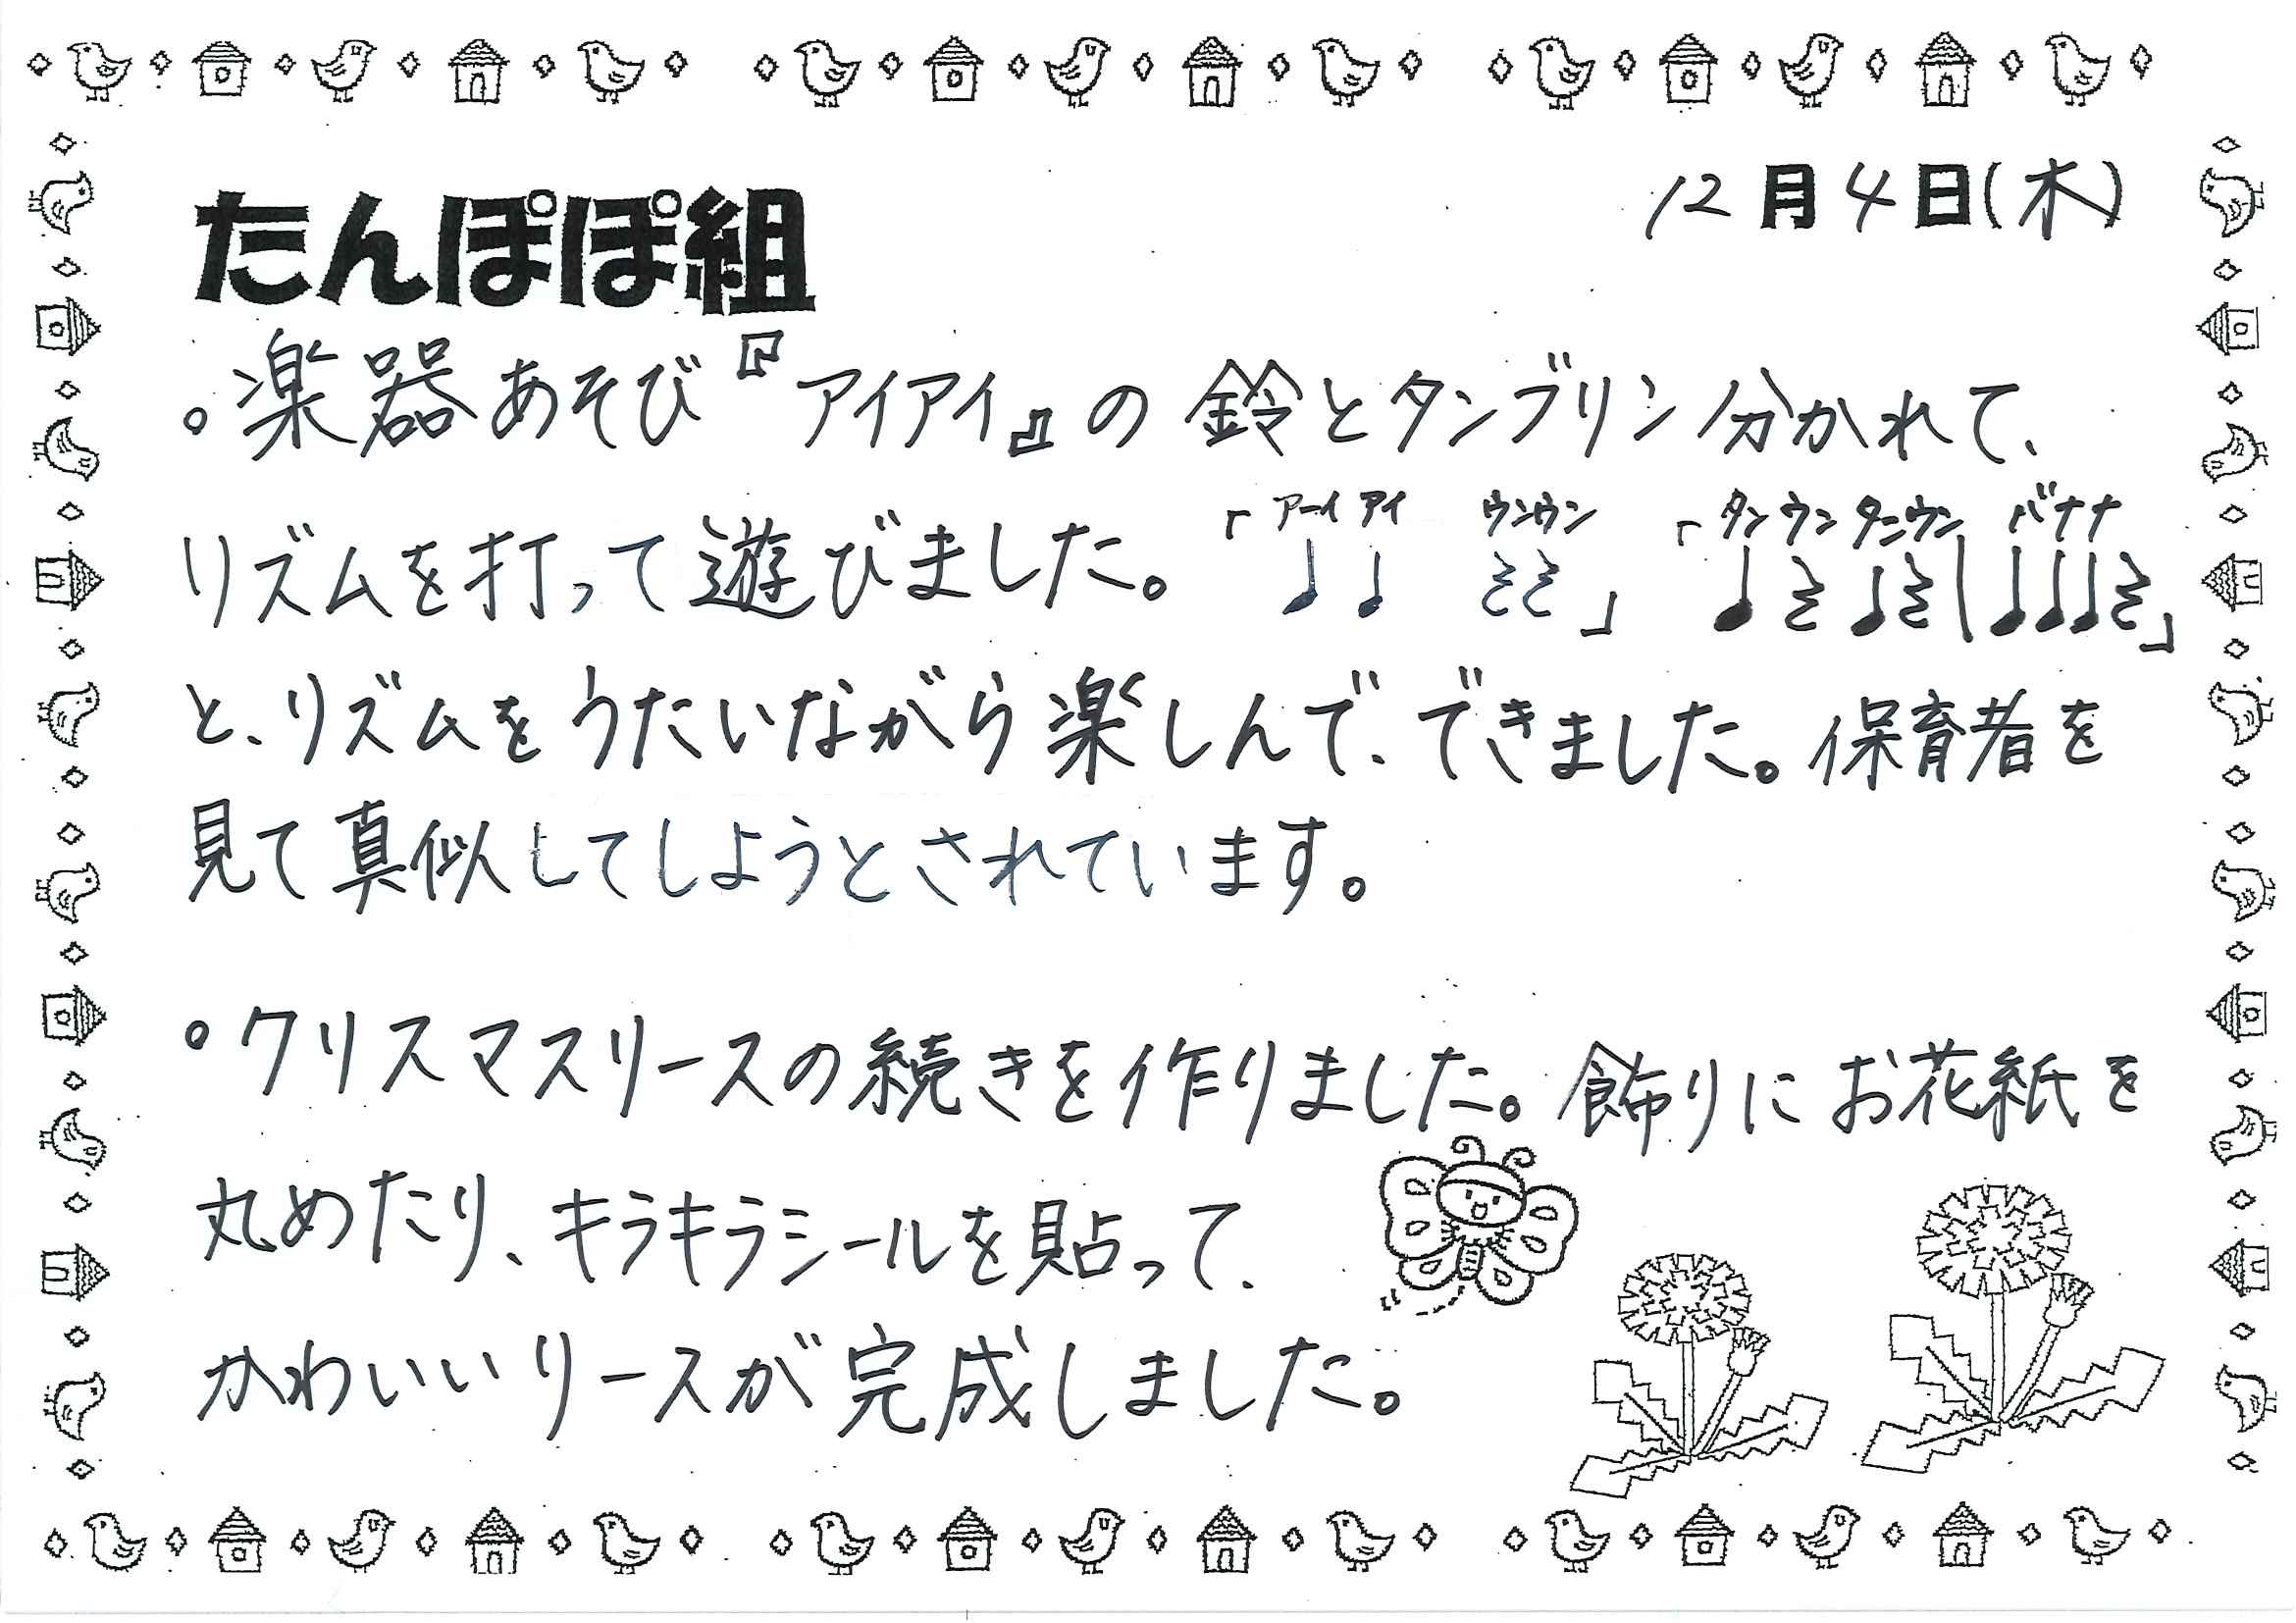 12月4日(木)
たんぽぽ組
。楽器あそび『アイアイ』の鈴とタンブリン分かれて、
リズムを打って遊びました。「アーイアイ ウンウン」「タンウンタンウン バナナ」
と、リズムをうたいながら楽しんで、できました。保育者を
見て真似してしようとされています。
。クリスマスリースの続きを作りました。飾りにお花紙を
丸めたり、キラキラシールを貼って、
かわいいリースが完成しました。